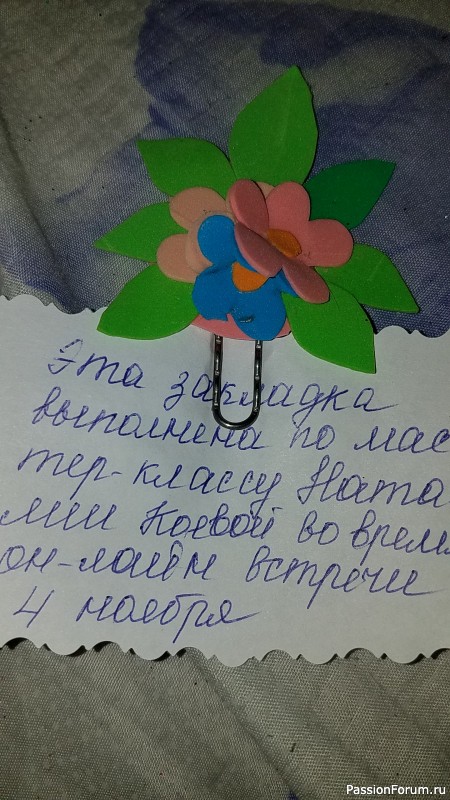 Эта закладка
выполнена по мас
тер-классу Ната
лии Коевой во врем
он-лайн встречи
4 ноября
PassionForum.ru